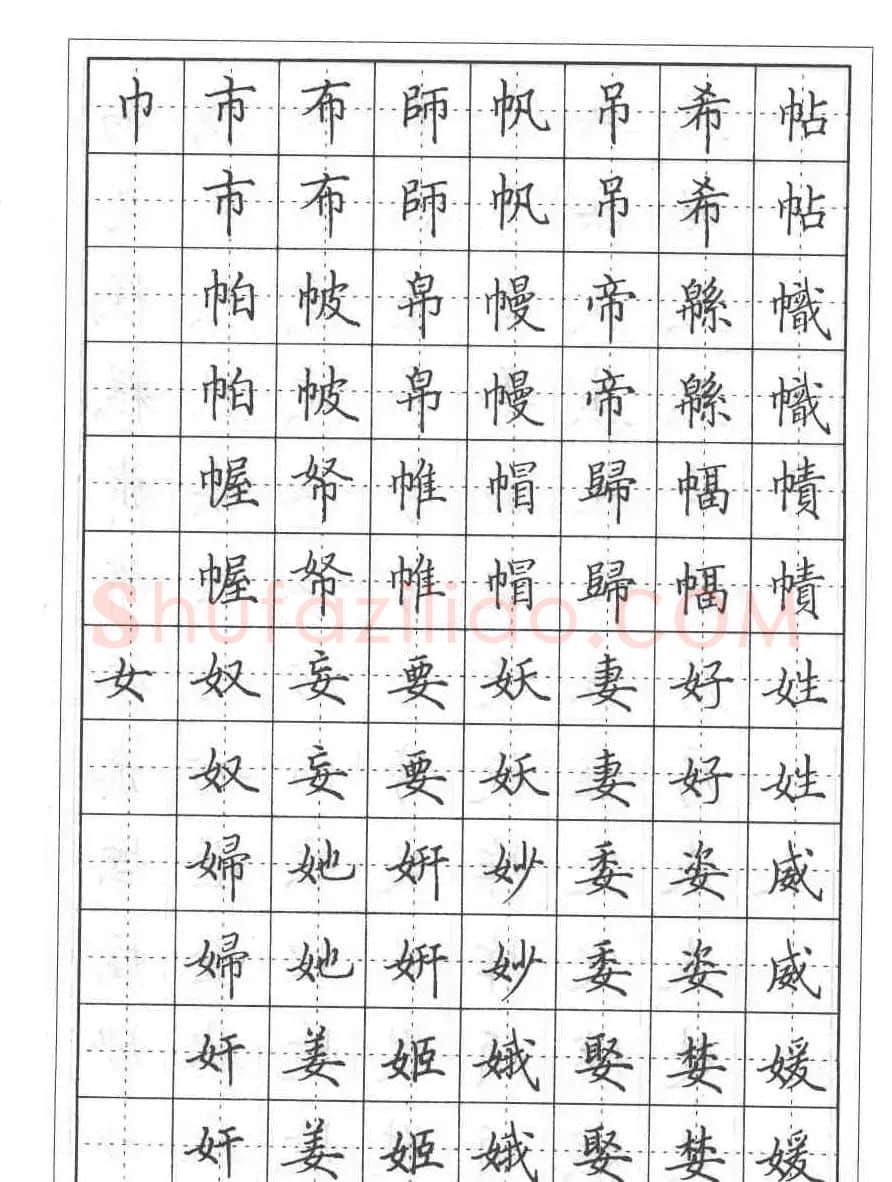 巾市布師帆吊希帖
市布師帆吊希帖
帕帔帛幔帝緜幟
帕帔帛幔帝緜幟
幄帑帷帽歸幅幘
幄帑帷帽歸幅幘
女奴妄要妖妻好姓
奴妄要妖妻好姓
婦她妍妙委姿威
婦她妍妙委姿威
奸姜姬娥娶婪媛
奸姜姬娥娶婪媛
Shufaziliao.COM